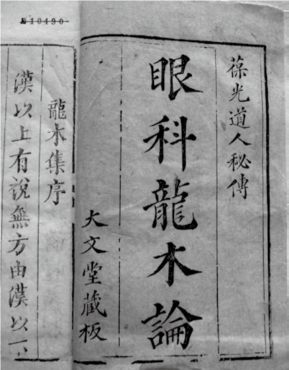 葆光道人秘傳
眼科龍木論
大文堂藏板
龍木集序
漢以上有說無方由漢以
10490